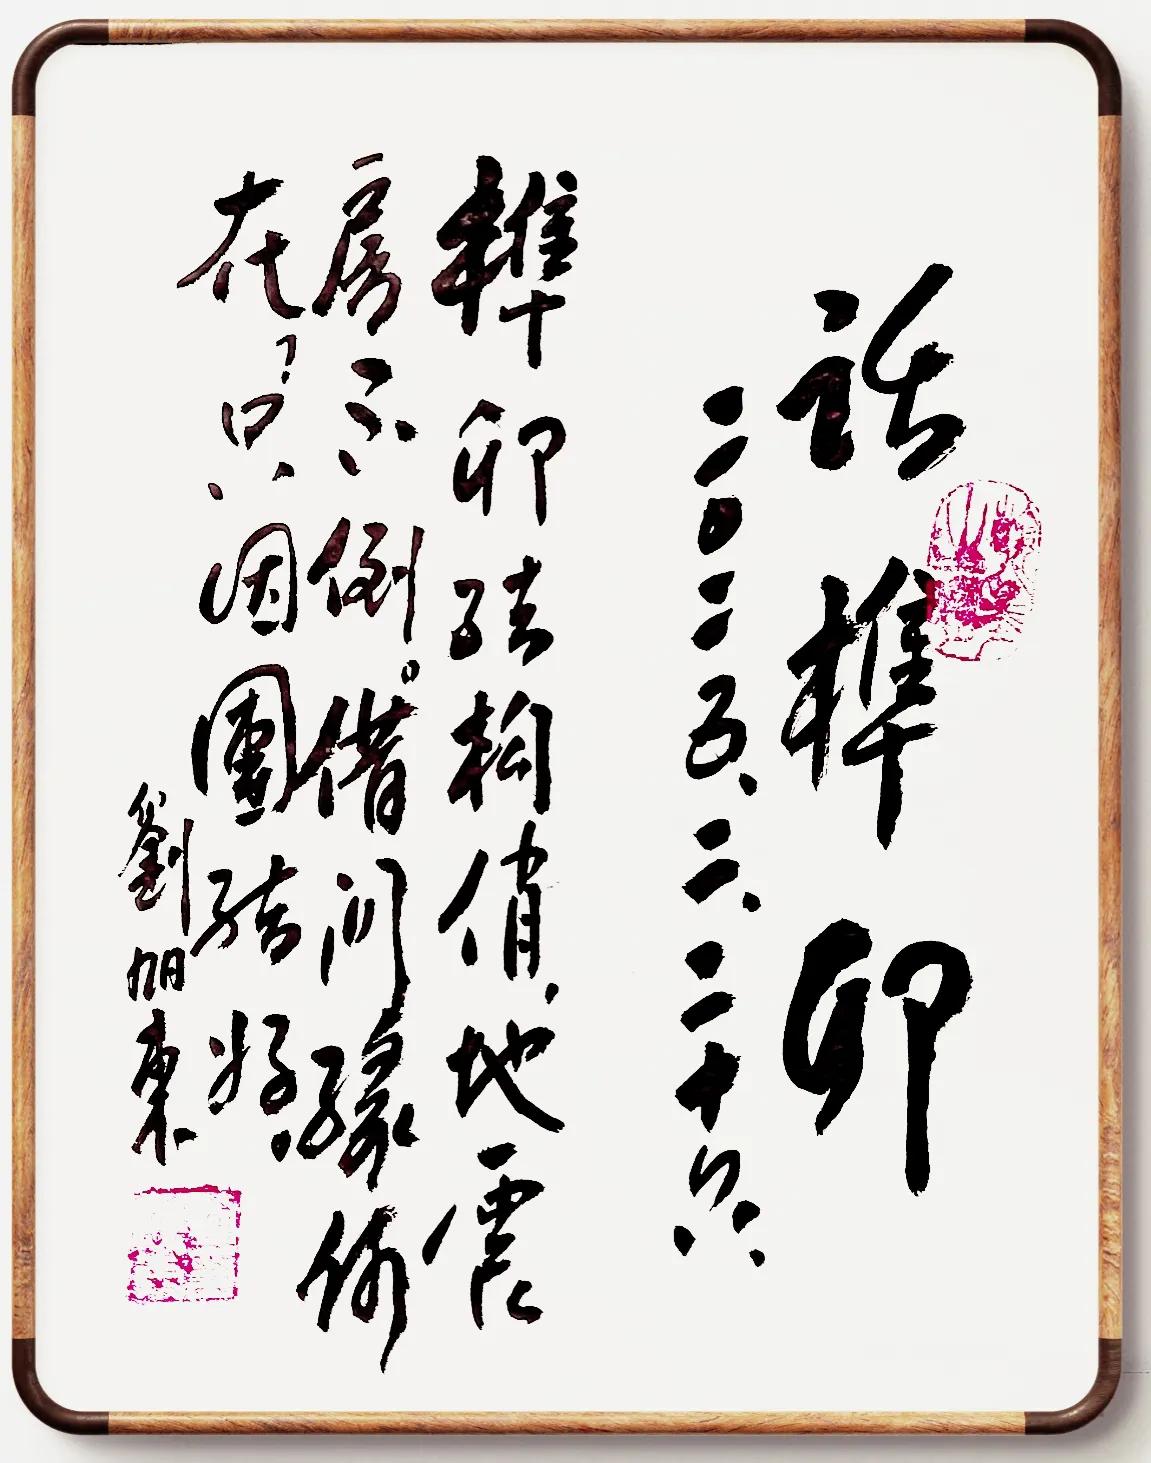 話榫卯
二〇二五、六、二十六
榫卯結构俏，地震
房不倒。借问缘何
在？只因團結好。
劉旭東